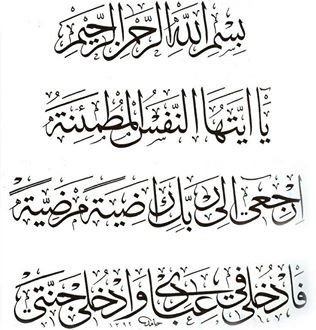 بِسْمِ اللهِ الرَّحْمٰنِ الرَّحِيْمِ
يَا اَيَّتُهَا النَّفْسُ الْمُطْمَئِنَّةُ
اِرْجِعِي اِلَى رَبِّكِ رَاضِيَةً مَرْضِيَّةً
فَادْخُلِي فِي عِبَادِي وَادْخُلِي جَنَّتِي